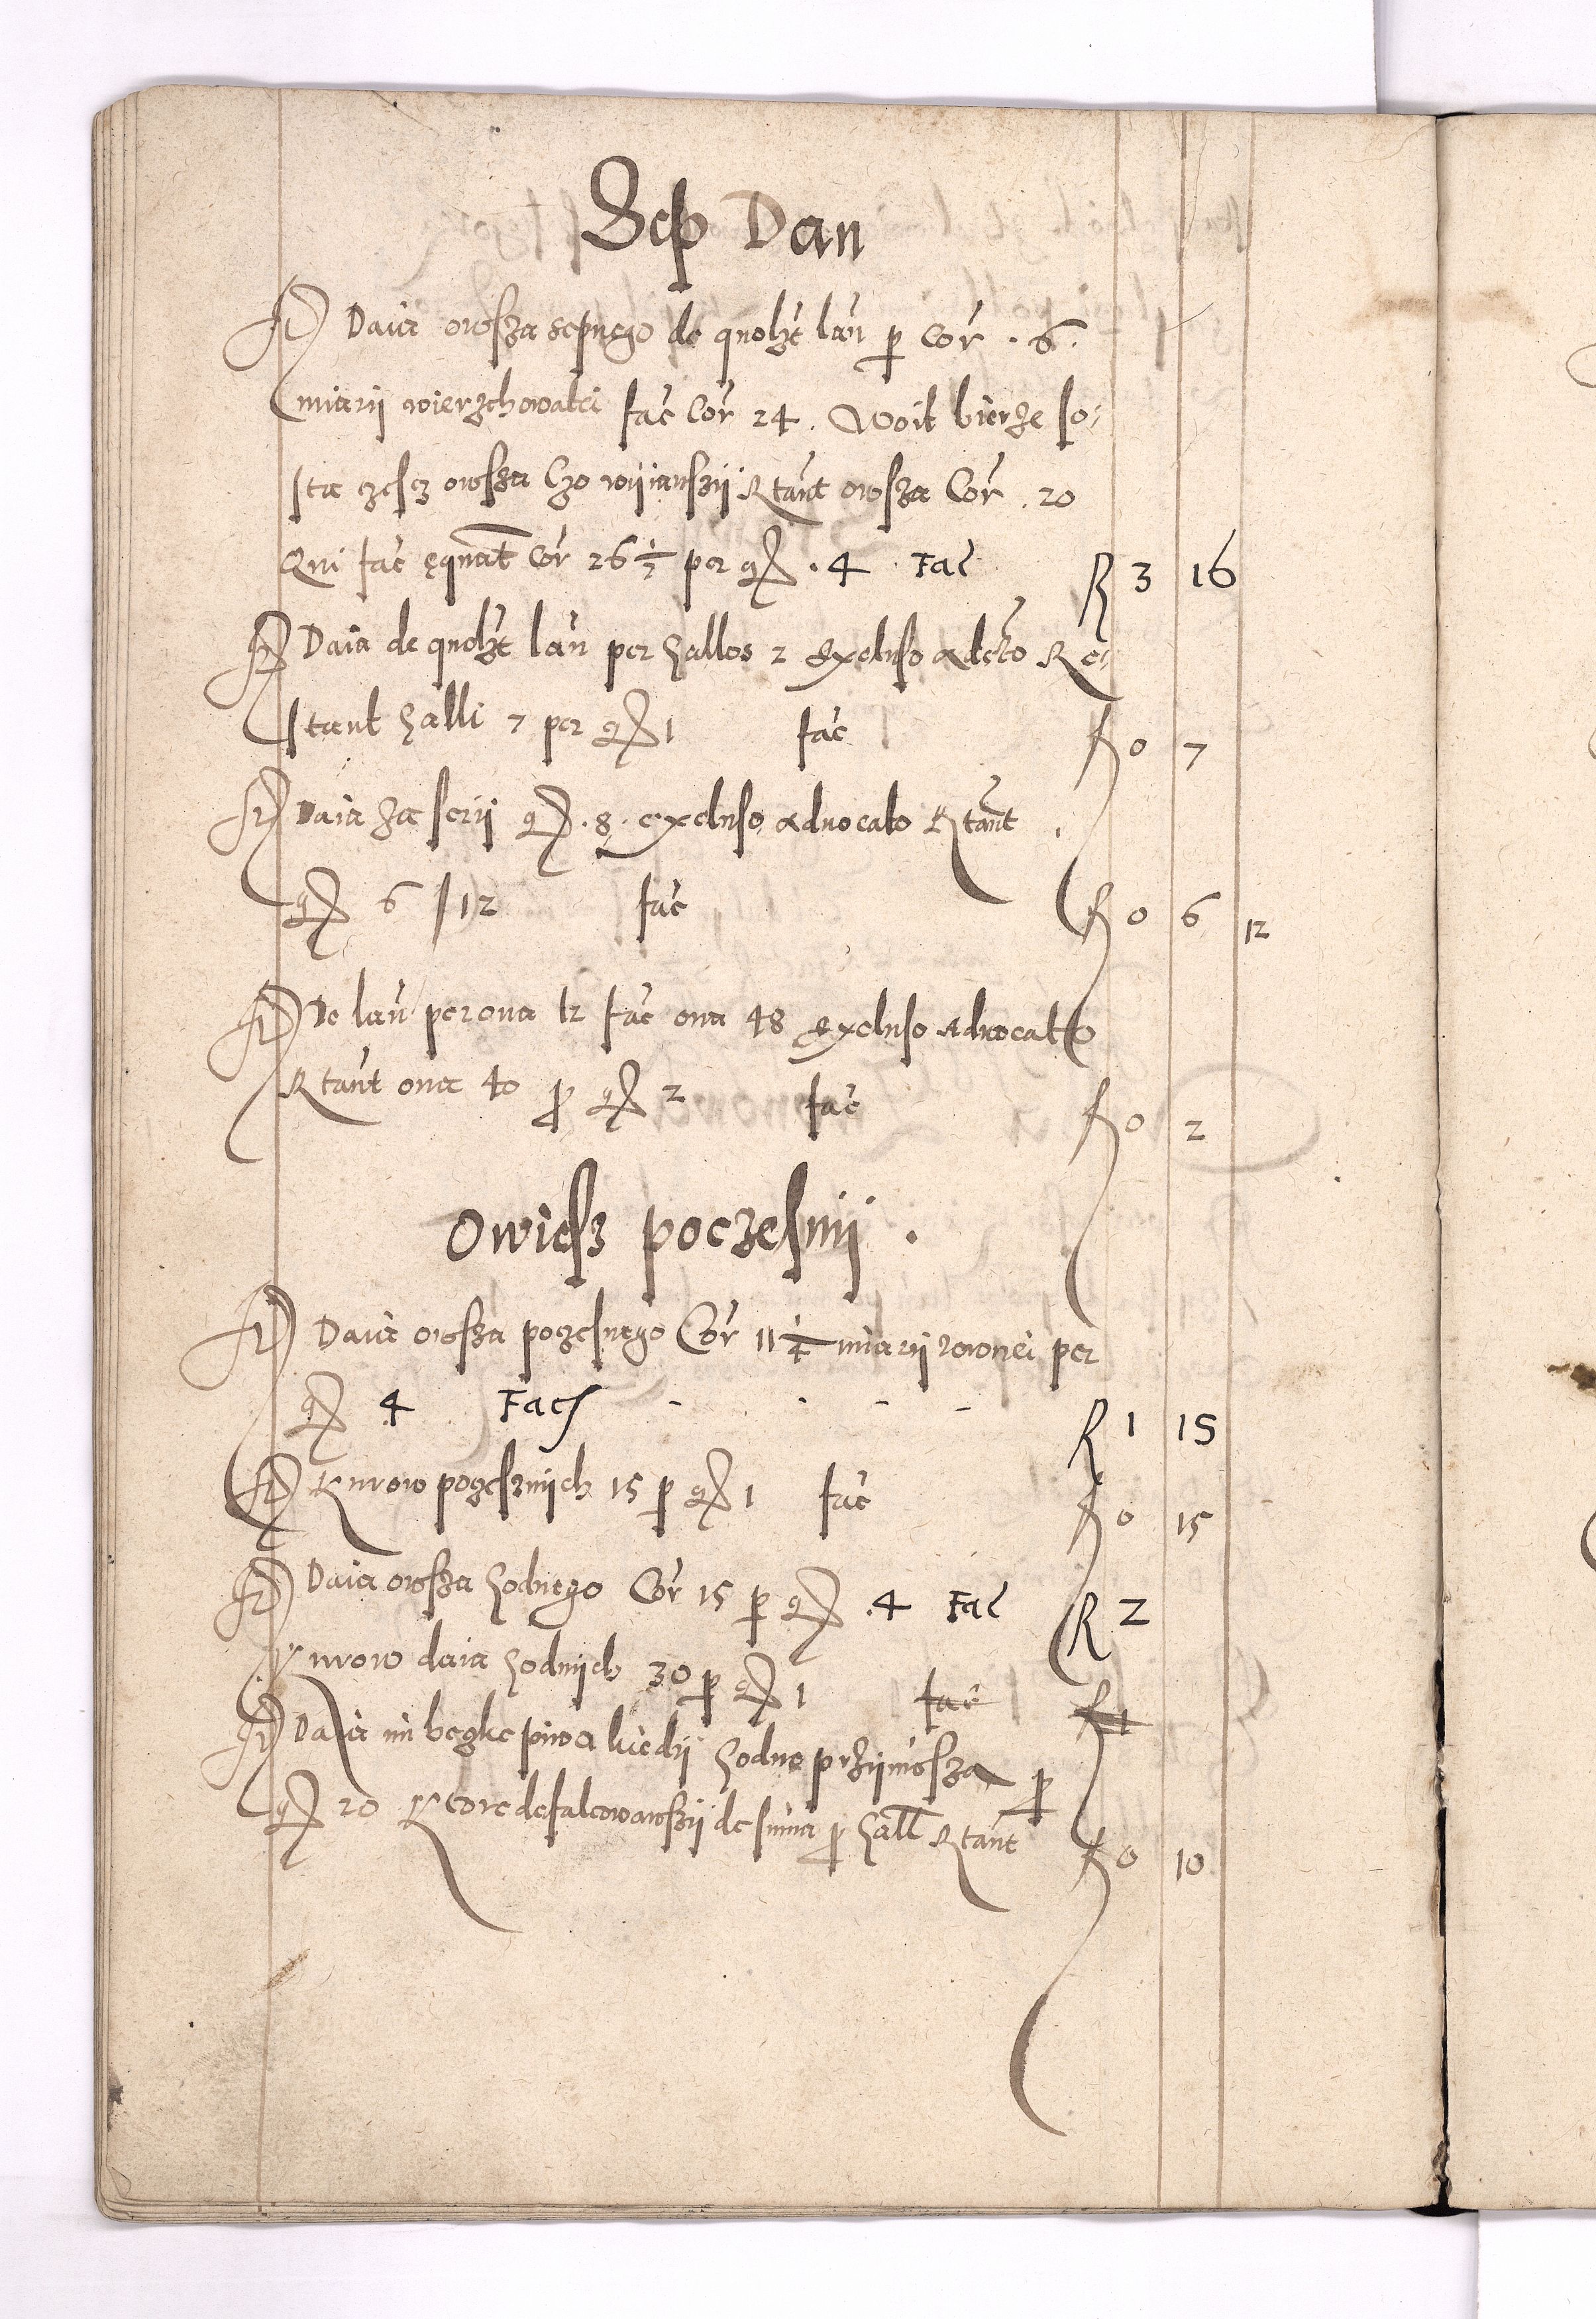 Sep Dan
It Daia owsza sepnego de quolzt lan p Cor . 6.
miarij wierzchowatei fac Cor 24. Woit bierze so-
sta czescz owsza Czo wyiawszij Rtant owsza Cor . 20
Qui fac equat Cor 26 1/2 per g . 4 Fac R 3 16
It Daia de quolzt lan per Gallos 2 Excluso adcto Re-
stant Galli 7 per g 1 fac f 0 7
It Daia za serij g . 8 . excluso aduocato Rtant
g 6 / 12 fac f 0 6 12
It De lan per oua 12 fac oua 48 Excluso Aduocatto
Rtant oua 40 p g 2 fac f 0 2
Owiesz poczesnij .
It Daia owsza poczesnego Cor 11 1/4 miarij rownei per
g 4 Fac - - - - R 1 15
It Kurow poczesznijch 15 p g 1 fac f 0 15
It Daia owsza Godnego Cor 15 p g . 4 Fac R 2
Kurow daia Godnijch 30 p g 1 fac f 1
It Daia im beczke piwa kiedij Godne przijniosza p
g 20 Ktore defalcowawszij de sum̄a p Gall Rtant f 0 10